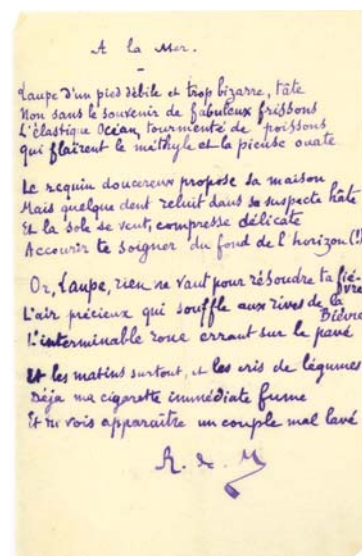 A la Mer.
Laupe d'un pied débile et trop bizarre, tâte
Non sans le souvenir de fabuleux frissons
L'élastique Océan, tourmenté de poissons
qui flairent le méthyle et la pieuse ouate
Le requin doucereux propose sa maison
Mais quelque dent reluit dans sa suspecte hâte
Et la sole se veut, compresse délicate
Accourir te soigner du fond de l'horizon (!)
Or, Laupe, rien ne vaut pour résoudre ta fiè-
vre
L'air précieux qui souffle aux rives de la
Bièvre
L'interminable roue errant sur le pavé
Et les matins surtout, et les cris de légumes
Déjà ma cigarette immédiate fume
Et tu vois apparaître un couple mal lavé
R. de M